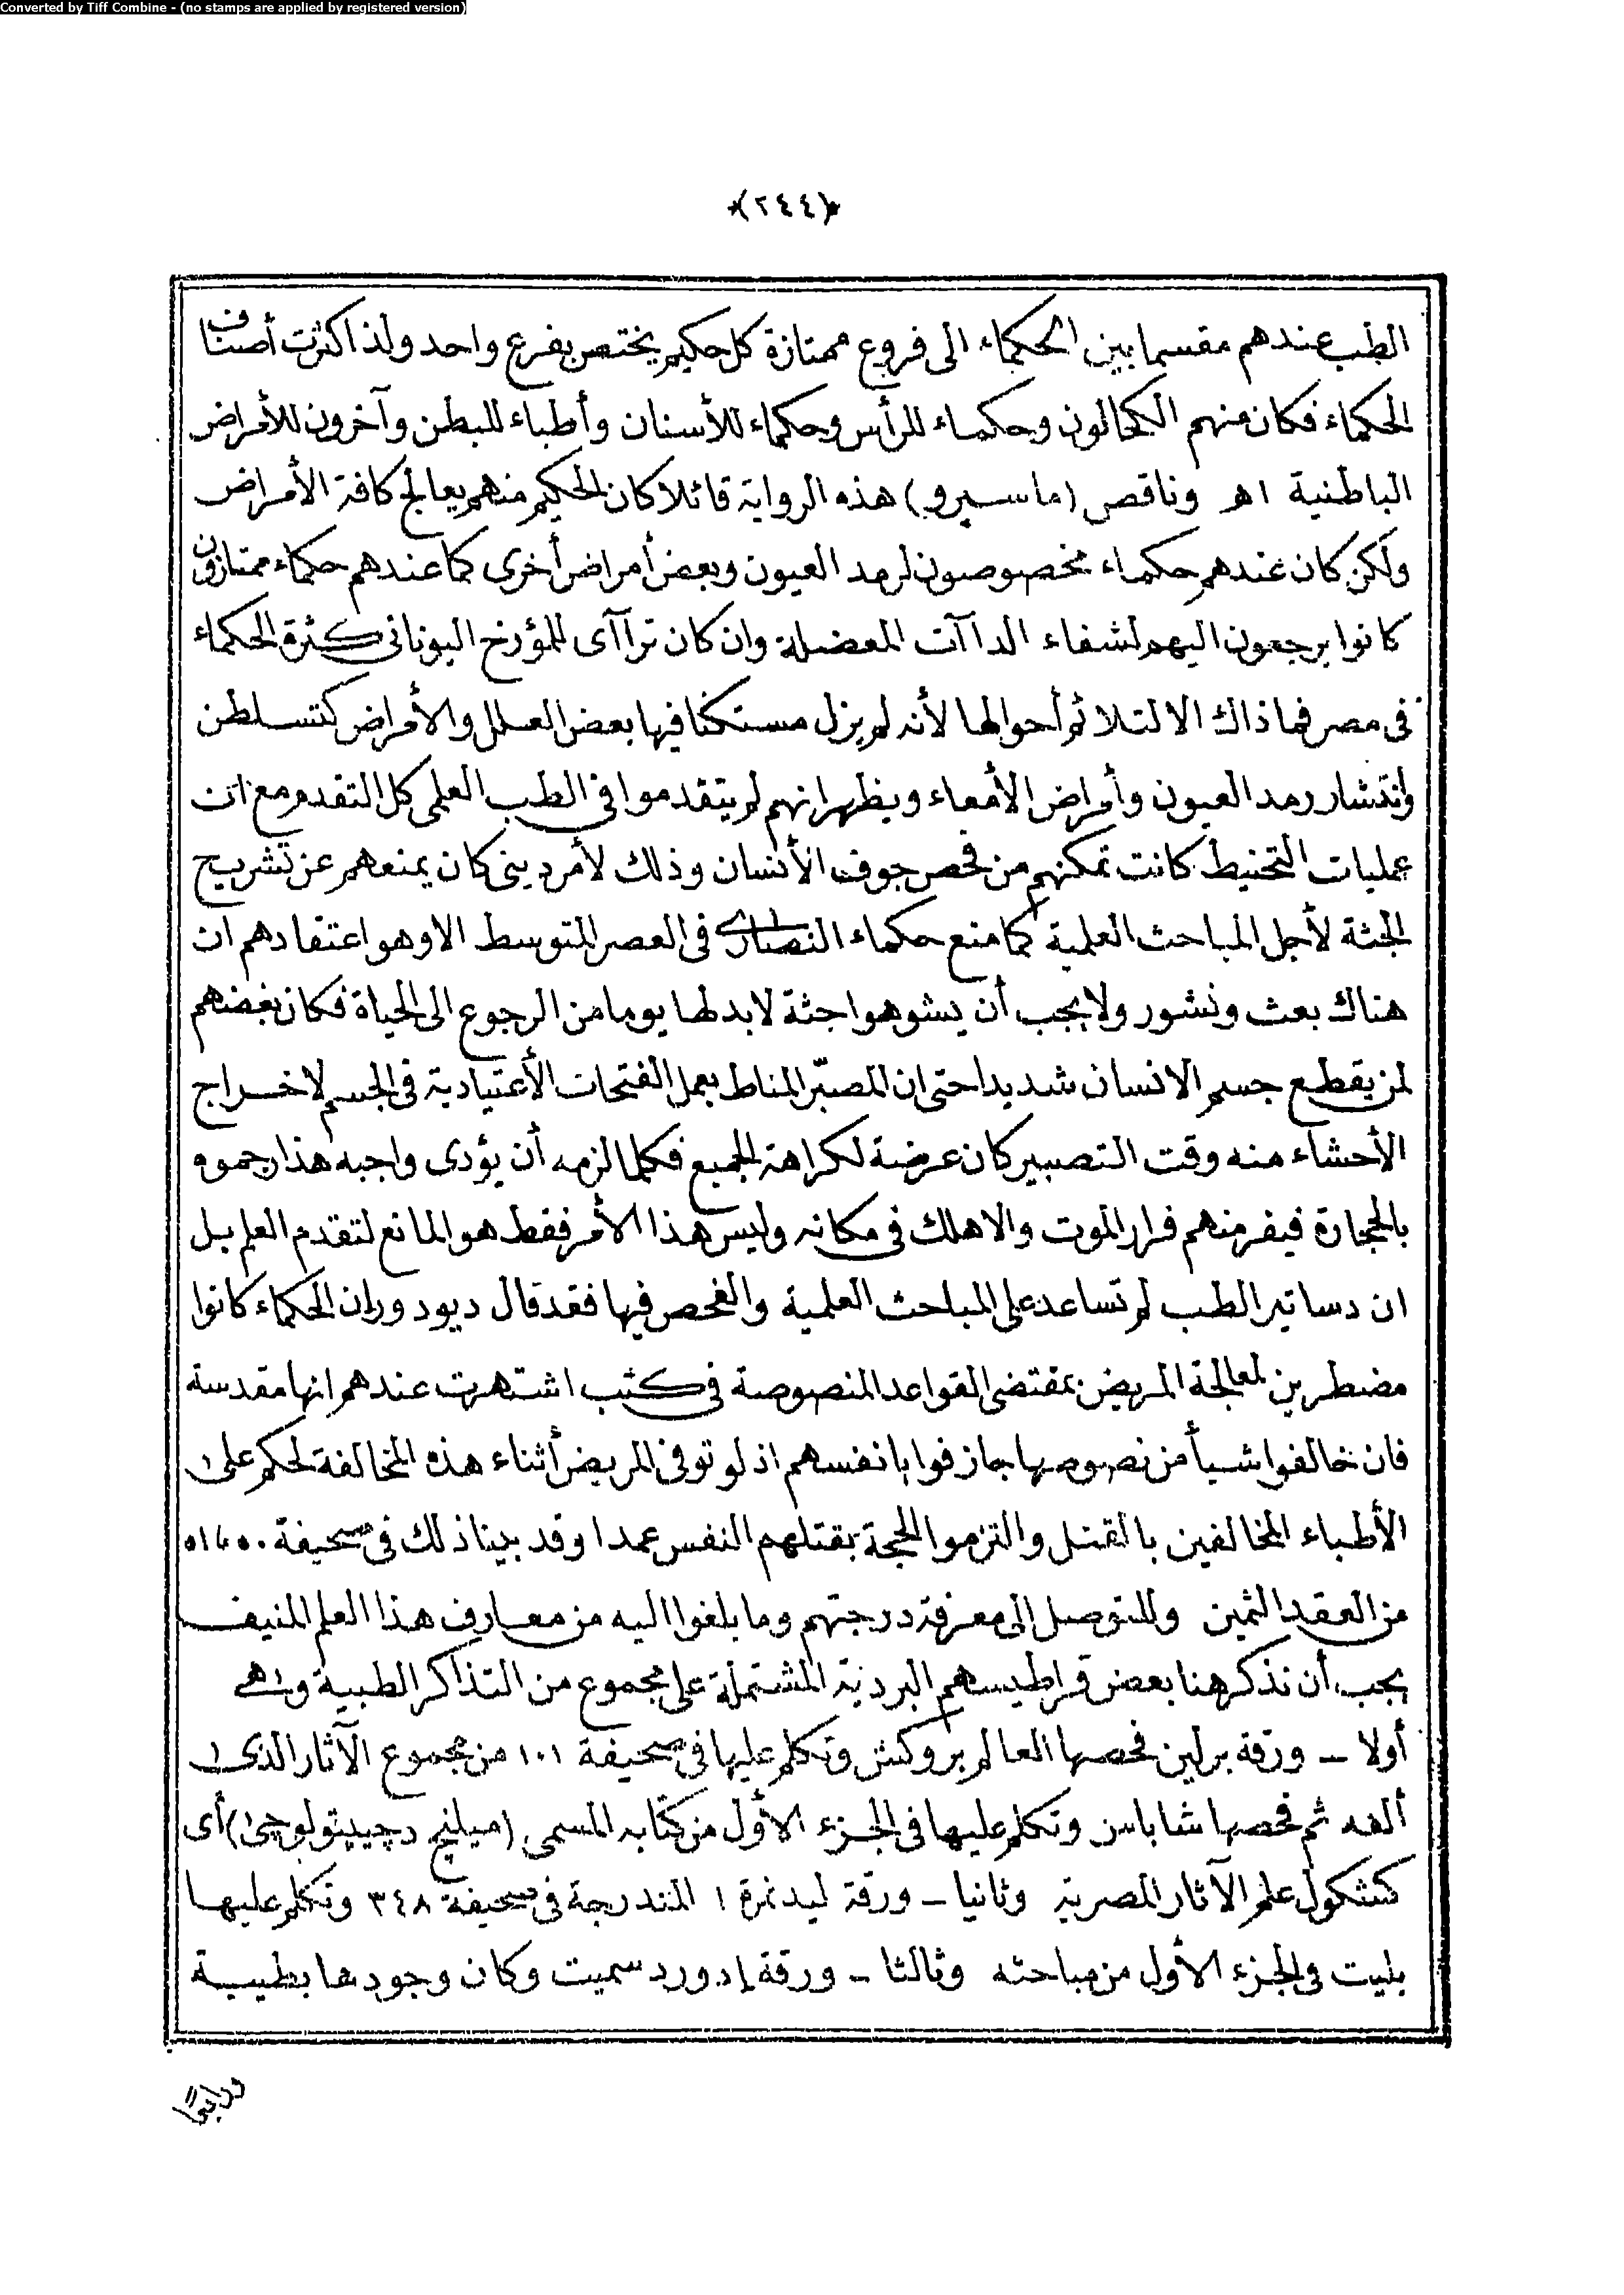 Converted by Tiff Combine - (no stamps are applied by registered version)
﴿٢٤٤﴾
الطب عندهم مقسما بين الحكماء الى فروع ممتازة كل حكيم يختص بفرع واحد ولذا كثرت أصناف
الحكماء فكان منهم الكحالون وحكماء للرأس وحكماء للأسنان وأطباء للبطن وآخرون للأمراض
الباطنية اهـ وناقص (ماسبرو) هذه الرواية قائلا كان الحكيم منهم يعالج كافة الأمراض
ولكن كان عندهم حكماء مخصوصون لرمد العيون وبعض أمراض أخرى كما عندهم حكماء ممتازون
كانوا يرجعون اليهم لشفاء الداآت المعضلة وان كان تراآى للمؤرخ اليونانى كثرة الحكماء
فى مصر فما ذاك الا لتلائم أحوالها لأنه لم يزل مستكنا فيها بعض العلل والأمراض كتسلطن
وانتشار رمد العيون وأمراض الأمعاء ويظهر انهم لم يتقدموا فى الطب العلمى كل التقدم مع ان
عمليات التحنيط كانت تمكنهم من فحص جوف الأنسان وذلك لأمر دينى كان يمنعهم عن تشريح
الجثة لأجل المباحث العلمية كما منع حكماء النصارى فى العصر المتوسط الا وهو اعتقادهم ان
هناك بعث ونشور ولا يجب أن يشوهوا جثة لا بد لها يوما من الرجوع الى الحياة فكان بغضهم
لمن يقطع جسم الانسان شديدا حتى ان المصبّر المناط بعمل الفتحات الأعتيادية فى الجسم لاخراج
الأحشاء منه وقت التصبير كان عرضة لكراهة الجميع فكلما لزمه أن يؤدى واجبه هذا رجموه
بالحجارة فيفر منهم فرار الموت والا هلك فى مكانه وليس هذا الأمر فقط هو المانع لتقدم العلم بل
ان دساتير الطب لم تساعد على المباحث العلمية والفحص فيها فقد قال ديودور ان الحكماء كانوا
مضطرين لمعالجة المريض بمقتضى القواعد المنصوصة فى كتب اشتهرت عندهم انها مقدسة
فان خالفوا شيأ من نصوصها جازفوا بانفسهم اذ لو توفى المريض أثناء هذه المخالفة لحكم على
الأطباء المخالفين بالقتل والتزموا الحجة بقتلهم النفس عمدا وقد بينا ذلك فى صحيفة
من العقد الثمين وللتوصل الى معرفة درجتهم وما بلغوا اليه من معارف هذا العلم المنيف
يجب أن نذكر هنا بعض قراطيسهم البردية المشتملة على مجموع من التذاكر الطبية وهى
أولا ـ ورقة برلين فحصها العالم بروكش وتكلم عليها فى صحيفة ١٠١ من مجموع الآثار الذى
ألفه ثم فحصها شاباس وتكلم عليها فى الجزء الأول من كتابه المسمى (ميلنج دچيپتولوچى) أى
كشكول علم الآثار المصرية وثانيا ـ ورقة ليد نمرة ١ المندرجة فى صحيفة ٣٤٨ وتكلم عليها
بليت فى الجزء الأول من مباحثه وثالثا ـ ورقة إدورد سميت وكان وجودها بطيبة
ورابعًا